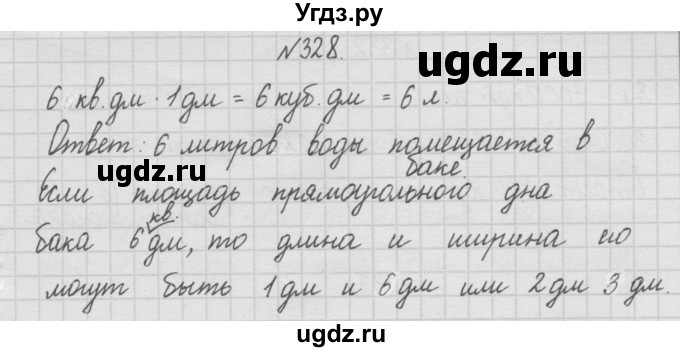 Угдз.ру
№328.
ugdz.ru
6 кв.дм · 1 дм = 6 куб.дм = 6 л.
Ответ: 6 литров воды помещается в баке.
ugdz.ru
Если площадь прямоугольного дна
бака 6 кв. дм, то длина и ширина его
могут быть 1 дм и 6 дм или 2 дм 3 дм.
ugdz.ru